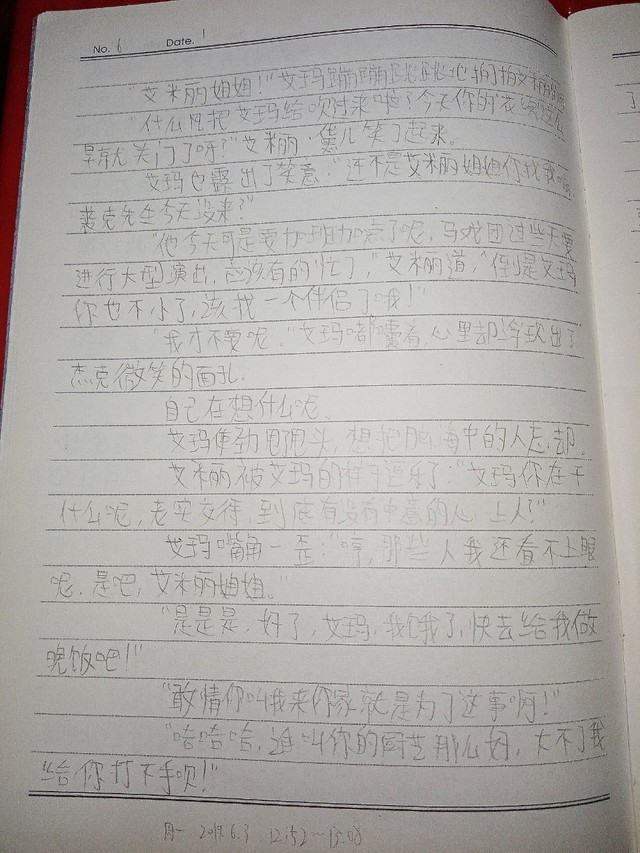 No. 6 Date. 1
"艾米丽姐姐!"艾玛蹦蹦跳跳地拍了拍艾米丽的
"什么风把艾玛给吹过来啦?今天你的花园这么
早就关门了呀?"艾米丽
艾玛也露出了笑意:"还不是艾米丽姐姐你找我
裘克先生今天没来?"
"他今天可是要加班加点了呢,马戏团过些天要
进行大型演出,应该有的忙了,"艾米丽道,"倒是艾玛
你也不小了,该找一个伴侣了哦!"
"我才不要呢。"艾玛嘟囔着,心里却浮现出了
杰克微笑的面孔.
自己在想什么呢.
艾玛使劲甩甩头,想把脑海中的人忘却.
艾米丽被艾玛的样子逗乐了:"艾玛你在干
什么呢,老实交待,到底有没有中意的心上人?"
艾玛嘴角一歪:"哼,那些人我还看不上眼
呢,是吧,艾米丽姐姐。"
"是是是,好了,艾玛,我饿了,快去给我做
晚饭吧!"
"敢情你叫我来你家就是为了这事啊!"
"哈哈哈,谁叫你的厨艺那么好,大不了我
给你打下手呗!"
周一 2019.6.3 12:52~13:08